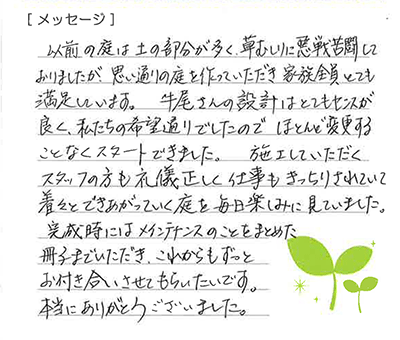 [メッセージ]
以前の庭は土の部分が多く、草むしりに悪戦苦闘して
おりましたが 思い通りの庭を作っていただき 家族全員とても
満足しています。 牛尾さんの設計はとてもセンスが
良く、私たちの希望通りでしたので ほとんど変更する
ことなくスタートできました。 施工していただく
スタッフの方も 礼儀正しく 仕事も きっちりされていて
着々とできあがっていく庭を毎日楽しみに見ていました。
完成時にはメインテナンスのことをまとめた
冊子までいただき、これからもずっと
お付き合いさせてもらいたいです。
本当にありがとうございました。